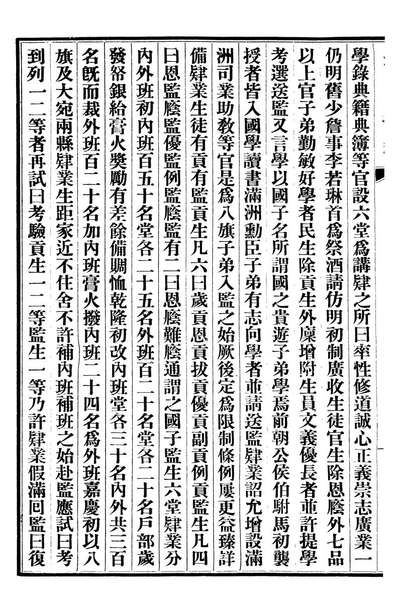 學錄典籍典簿等官設六堂爲講肄之所曰率性修道誠心正義崇志廣業一
仍明舊少詹事李若琳首爲祭酒請仿明初制廣收生徒官生除恩廕外七品
以上官子弟勤敏好學者民生除貢生外廩增附生員文義優長者並許提學
考選送監又言學以國子名所謂國之貴遊子弟學焉前朝公侯伯駙馬初襲
授者皆入國學讀書滿洲勳臣子弟有志向學者並請送監肄業詔允增設滿
洲司業助敎等官是爲八旗子弟入監之始厥後定爲限制條例屢更益臻詳
備肄業生徒有貢有監貢生凡六曰歲貢恩貢拔貢優貢副貢例貢監生凡四
曰恩監廕監優監例監廕監有二曰恩廕難廕通謂之國子監生六堂肄業分
內外班初內班百五十名堂各二十五名外班百二十名堂各二十名戶部歲
發帑銀給膏火獎勵有差餘備賙恤乾隆初改內班堂各三十名內外共三百
名旣而裁外班百二十名加內班膏火撥內班二十四名爲外班嘉慶初以八
旗及大宛兩縣肄業生距家近不住舍不許補內班補班之始赴監應試曰考
到列一二等者再試曰考驗貢生一二等監生一等乃許肄業假滿回監曰復